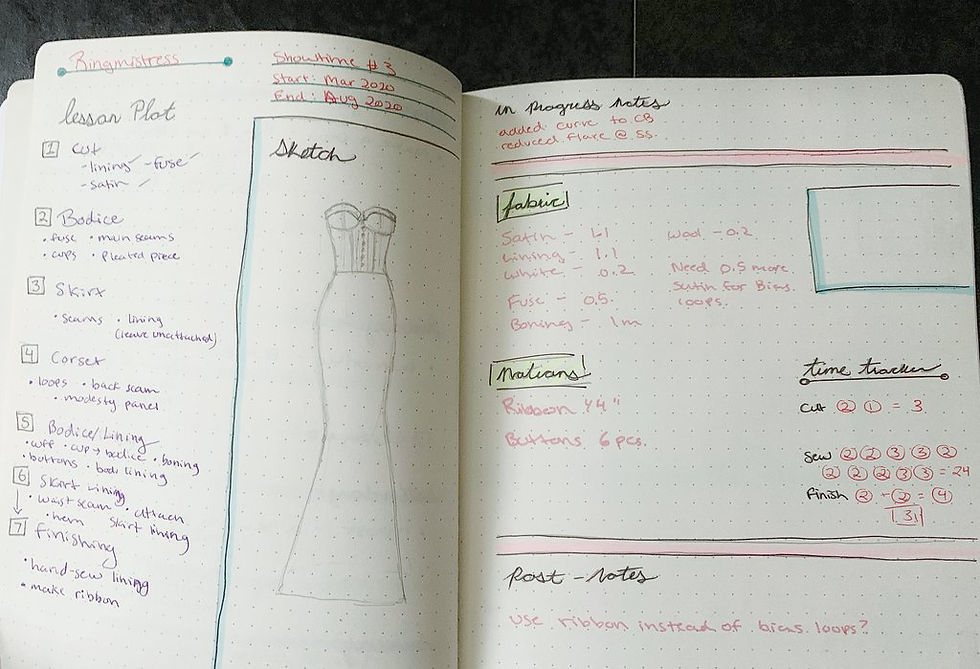 Ringmistress
Showtime #3
Start: Mar 2020
End: Aug 2020
lesson Plot
1 Cut
- lining ✓ - fuse ✓
- satin ✓
2 Bodice
• fuse • main seams
• cups • pleated piece
3 Skirt
• seams • lining
(leave unattached)
4 Corset
• loops • back seam
• modesty panel
5 Bodice/Lining
• cuff • cup → bodice • boning
• buttons • bodi lining
6 Skirt Lining
• waist seam • attach
• hem Skirt lining
7 Finishing
• hand-sew lining
• make ribbon
Sketch
in progress notes
added curve to CB
reduced flare @ SS.
fabric
Satin - 1.1
Lining - 1.1
White - 0.2
Fuse - 0.5
Boning - 1m
Wool - 0.2
Need 0.5 more
satin for Bias
loops.
Notions
Ribbon 1/4"
Buttons 6 pcs.
time tracker
Cut 2 1 = 3
Sew 2 2 3 3 2
2 2 2 3 3 = 24
Finish 2 + 2 = 4
31
Post-Notes
use ribbon instead of bias loops?